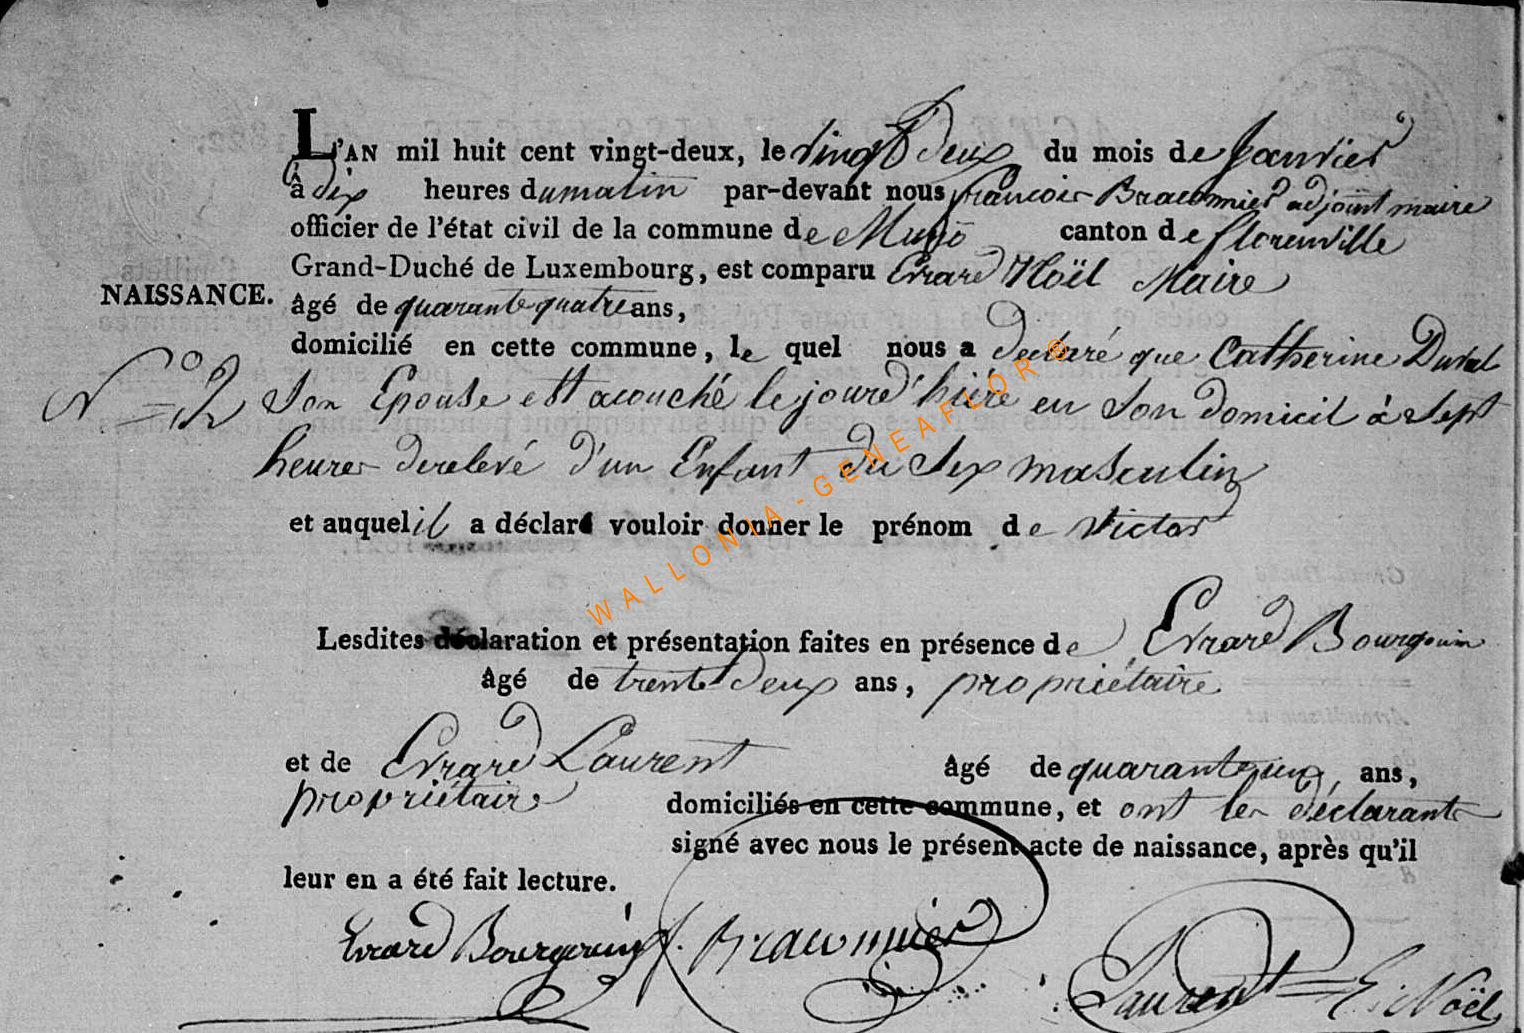 L'AN mil huit cent vingt-deux, le vingt deux du mois de Janvier
à dix heures du matin par-devant nous francois Braconnier adjoint maire
officier de l'état civil de la commune de Muno canton de florenville
Grand-Duché de Luxembourg, est comparu Evrard Noël Maire
NAISSANCE. âgé de quarante quatre ans,
domicilié en cette commune, le quel nous a declaré que Catherine Duval
N.º 2 Son Epouse est acouché le jourd'hiére en Son domicil à Sept
heures derelevé d'un Enfant du Sex masculin
et auquel il a déclaré vouloir donner le prénom de Victor
WALLONIA - GENEAFLOR ®
Lesdites déclaration et présentation faites en présence de Evrard Bourgouin
âgé de trente deux ans, propriétaire
et de Evrard Laurent âgé de quarante ans,
propriétaire domiciliés en cette commune, et ont les déclarants
signé avec nous le présent acte de naissance, après qu'il
leur en a été fait lecture.
Evrard f. Braconnier
Laurent E: Noël